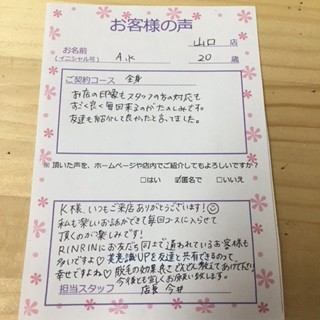 お客様の声
山口 店
お名前
(イニシャル可) A.K 20 歳
ご契約コース 全身
お店の印象もスタッフの方の対応も
すごく良く毎回来るのがたのしみです。
友達も紹介して良かったと言ってました。
※頂いた声を、ホームページや店内でご紹介してもよろしいですか?
□はい ☑匿名で □いいえ
K様、いつもご来店ありがとうございます!☺
私も楽しいお話ができて毎回コースに入らせて
頂くのが楽しみです!
RINRINにお友だち同士で通われているお客様も
多いですよ♡美意識UPを友達と共有できるのって
幸せですよね♡脱毛の効果もどんどん教えてあげて下さい
今後とも宜しくお願い致します。
担当スタッフ 店長 今井